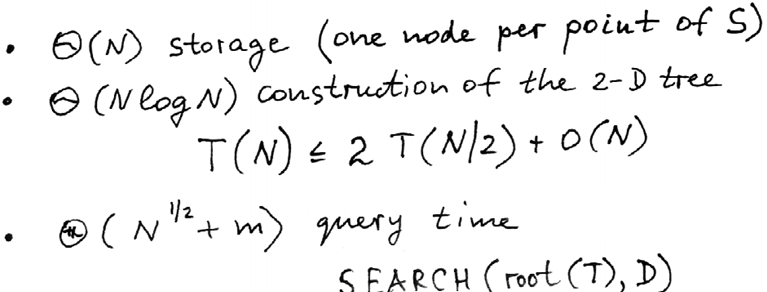 • Θ(N) storage (one node per point of S)
• Θ(N log N) construction of the 2-D tree
T(N) ≤ 2 T(N/2) + O(N)
• Θ(N^{1/2} + m) query time
SEARCH(root(T), D)